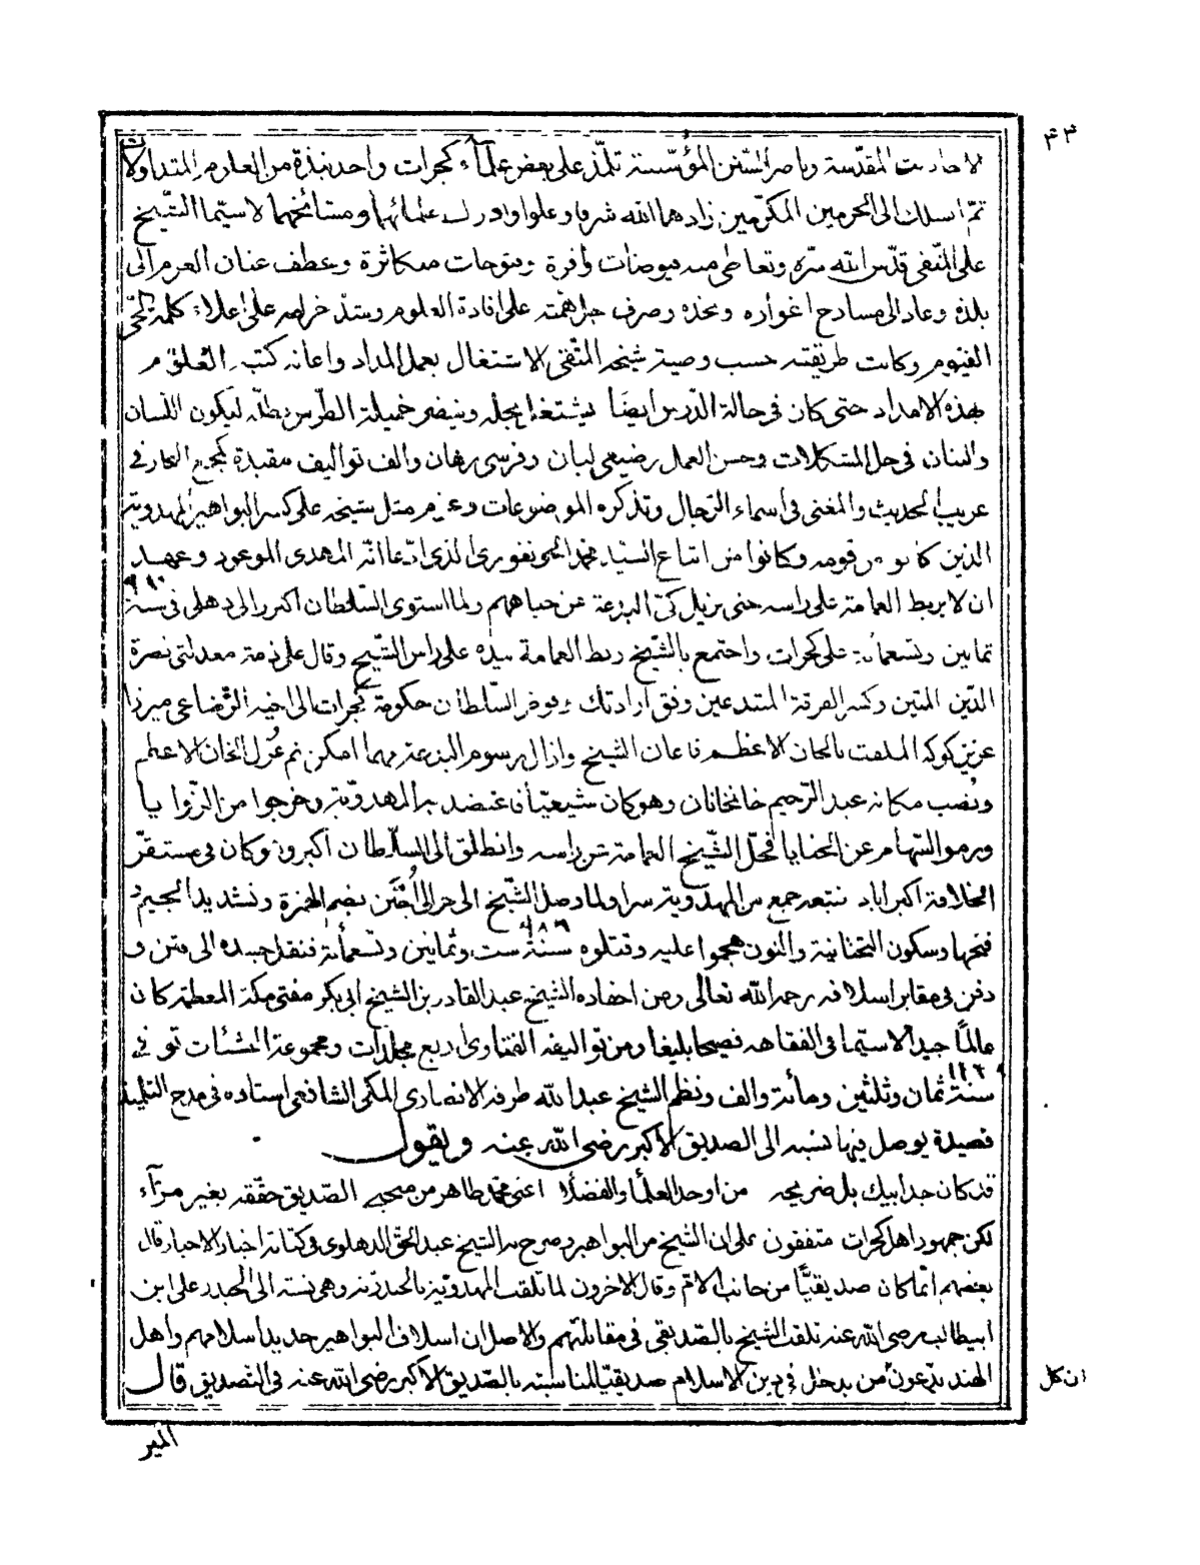 ۴۳
لاحاديث المقدّسة وناصر السّنن المؤسّسة تلمّذ على بعض علمآء كجرات واخذ نبذة من العلوم المتداولات
ثمّ انسلك الى الحرمين المكرّمين زادهما الله شرفا وعلوا وادرك علمائهما ومشائخهما لاسيّما الشّيخ
على المتّقى قدّس الله سرّه وتعاطى منه فيوضات وافرة وفتوحات متكاثرة وعطف عنان العزم الى
بلده وعاد الى مسارح اغواره ونجده وصرف جل همّته على افادة العلوم وشدّ حزامه على اعلاء كلمة الحّى
القيّوم وكانت طريقته حسب وصية شيخه المتّقى الاشتغال بعمل المداد واعانة كتبة العلوم
بهذه الامداد حتى كان فى حالة الدّرس ايضًا يشتغل بحله وينضر خميلة الطّرس بطلّه ليكون اللسان
والبنان فى حل المشكلات وحسن العمل رضيعى لبان وفرسى رهان والف تواليف مفيدة كمجمع البحار فى
غريب الحديث والمغنى فى اسماء الرّجال وتذكره الموضوعات وعزم مثل شيخه على كسر البواهير المهدوية
الذين كانوا من قومه وكانوا من اتباع السّيد محمد الجونفورى الذى ادّعا انّه المهدى الموعود وعهد
ان لا يربط العمامة على راسه حتى يزيل كىّ البدعة عن جباههم ولما استوى السّلطان اكبر والى دهلى فى سنة
۹۸۰
ثمانين وتسعمائة على كجرات واجتمع بالشّيخ ربط العمامة بيده على راس الشّيخ وقال على ذمة معدلتى نصرة
الدّين المتين وكسر الفرقة المبتدعين وفق ارادتك وفوض السّلطان حكومة كجرات الى اخيه الرّضاعى ميرزا
عزيز كوكه الملقب بالخان الاعظم فاعان الشيخ وازال رسوم البدعة مهما امكن ثم عُزل الخان الاعظم
ونُصب مكانه عبد الرّحيم خانخانان وهو كان شيعيّا فاعتضد به المهدويّة وخرجوا من الزّوايا
ورمو السّهام عن الحنايا فحلّ الشّيخ العمامة عن راسه وانطلق الى السلّطان اكبر وكان فى مستقرّ
الخلافة اكبراباد فتبعه جمع من المهدوية سرا ولما وصل الشّيخ الى حوالى اُجَّين بضم الهمزة وتشديد الجيم و
فتحها وسكون التحتانية والنون هجموا عليه وقتلوه سنة ست وثمانين وتسعمأئة فنقل جسده الى فتن و
۹۸۶
دفن فى مقابر اسلافه رحمه الله تعالى ومن احفاده الشيخ عبد القادر بن الشيخ ابى بكر مفتى مكة المعظمة كان
عالمًا جيدا لاسيّما فى الفقاهه فصيحا بليغا ومن تواليفه الفتاوى اربع مجلدات ومجموعة المنشئات توفى
سنة ثمان وثلثين ومأئة والف ونظم الشيخ عبد الله طرفه الانصارى المكى الشافعى استاده فى مدح التلميذ
۱۱۳۸
قصيدة يوصل فيها نسبه الى الصديق الاكبر رضى الله عنه ويقول
قد كان جد ابيك بل ضريحه من اوحد العلمأ والفضلا اعنى محمّد طاهر من منجبے الصّديق حقّقه بغير مرآء
لكن جمهور اهل كجرات متفقون على ان الشيخ من البواهير وصرح به الشيخ عبد الحّق الدهلوى فى كتابه اخبار الاخيار قال
بعضهم انّما كان صديقيًّا من جانب الامّ وقال الاخرون لما تلقب المهدويّة بالحيدريّة وهى نسبة الى الحيدر على ابن
ابيطالب رضى الله عنه تلقب الشيخ بالصّديقى فى مقابلتهم والاصل ان اسلاف البواهير جديد اسلامهم واهل
الهند يدّعون من يدخل فى دين الاسلام صديقيّا لمناسبته بالصّديق الاكبر رضى الله عنه فى التصديق قال
ان كل
المير